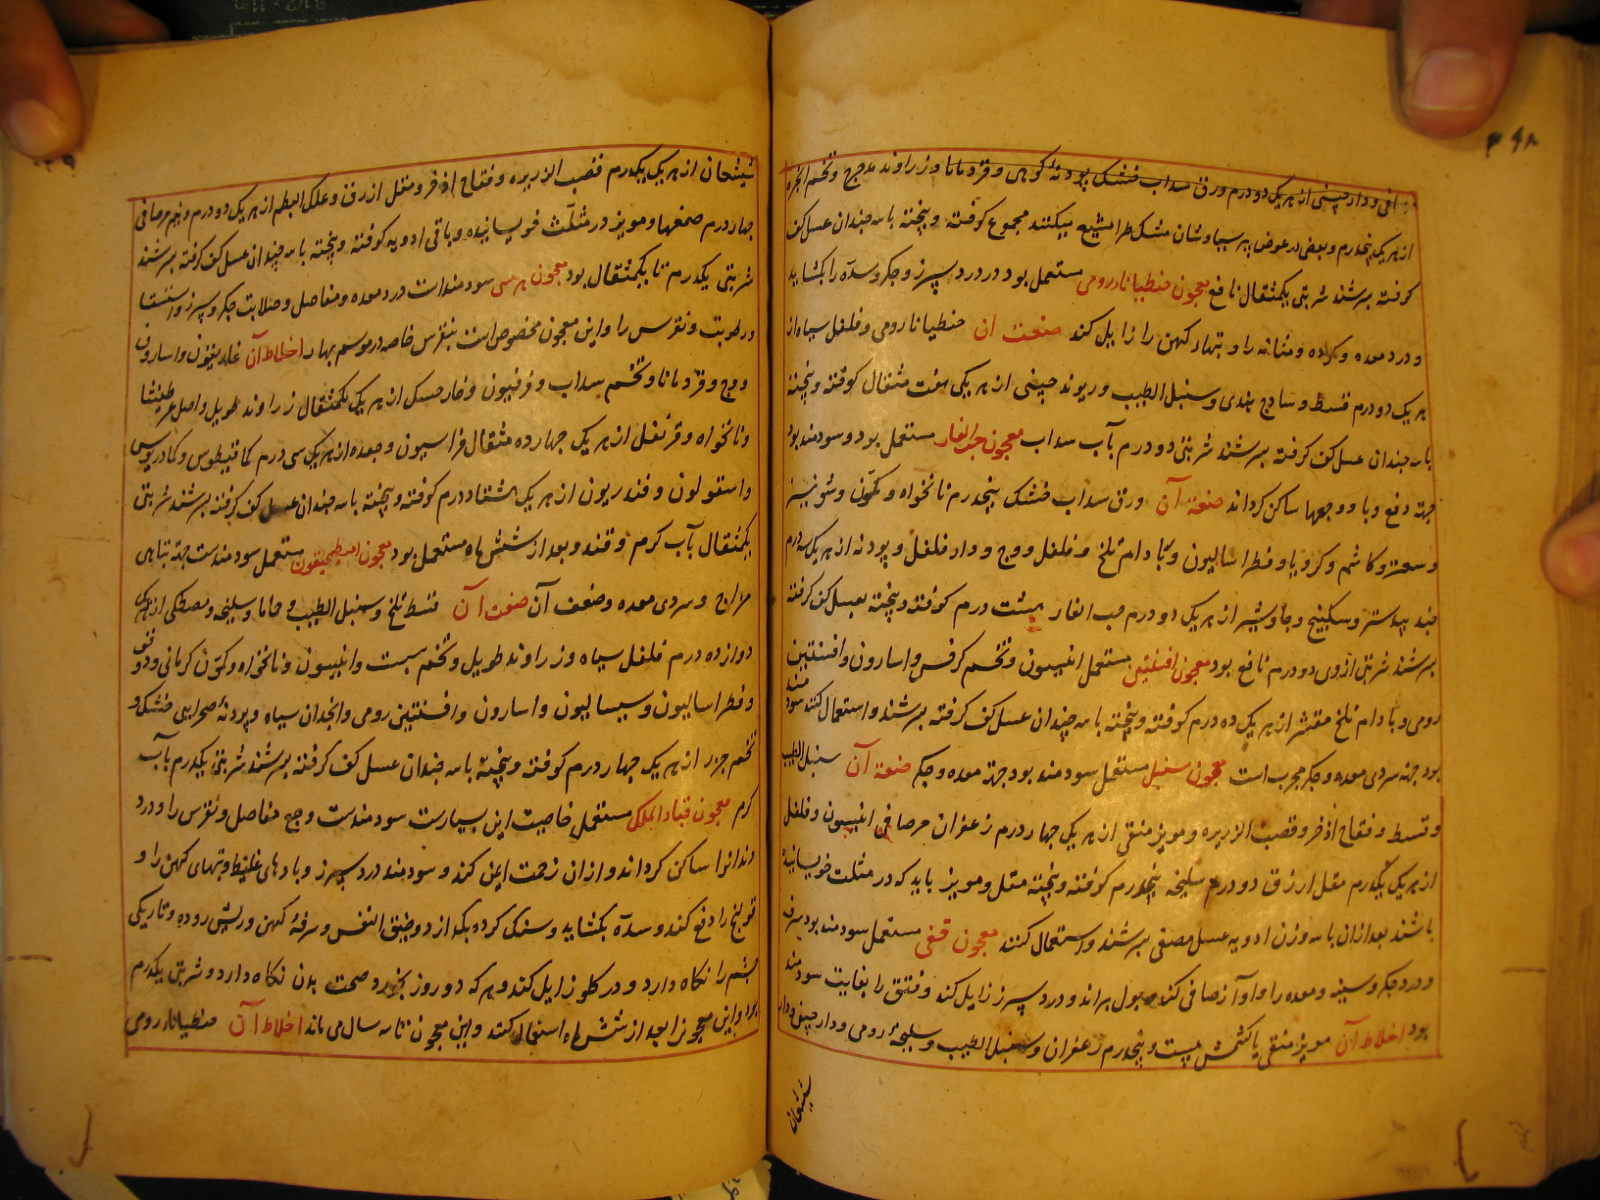 ۳۶۸
صافی و دارچینی از هر یک دو درم ورق سداب خشک پودنهٔ کوهی و قردمانا و زراوند مدحرج و تخم انجره
از هر یک پنجدرم و بعضی در عوض پرسیاوشان مشکطرامشیع میکنند مجموع کوفته و بیخته با سه چندان عسل کف
کرفته بسرشند شربتی یکمثقال نافع معجون جنطیانا رومی مستعمل بود در درد سپرز و جکر و سده را بکشاید
و درد معده و کرده و مثانه را و تبهاء کهن را زایل کند صنعت آن جنطیانا رومی و فلفل سیاه از
هر یک دو درم قسط و ساذج هندی و سنبل الطیب و ریوند چینی از هر یکی هفت مثقال کوفته و بیخته
با سه چندان عسل کف کرفته بسرشند شربتی دو درم بآب سداب معجون حب الغار مستعمل بود و سودمند بود
جهة دفع وبا و وجعها ساکن کرداند صنعة آن ورق سداب خشک پنجدرم نانخواه و کمون و شونیز
و سعتر و کاشم و کرویا و فطراسالیون و بادام تلخ و فلفل و وج و دارفلفل و پودنه از هر یک سه درم
جندبیدستر و سکبینج و جاوشیر از هر یک دو درم حب الغار هشت درم کوفته و بیخته بعسل کف کرفته
بسرشند شربتی ازوی دو درم نافع بود معجون افسنتین مستعمل انیسون و تخم کرفس و اسارون و افسنتین
رومی و بادام تلخ مقشر از هر یک ده درم کوفته و بیخته با سه چندان عسل کف کرفته بسرشند و استعمال کنند سودمند
بود جهة سردی معده و جکر مجرب است معجون سنبل مستعمل سودمند بود جهة معده و جکر صنعة آن سنبل الطیب
و قسط و فقاح اذخر و قصب الذریره و مویز منقی از هر یک چهار درم زعفران مرصافی انیسون و فلفل
از هر یک یکدرم مقل ازرق دو درم سلیخه پنجدرم کوفته و بیخته مقل و مویز باید که در مثلث خویسانیده
باشند بعد ازان با سه وزن ادویه عسل مصفی بسرشند و استعمال کنند معجون قفی مستعمل سودمند بود سرفه
و درد جکر و سینه و معده را و آواز صافی کند و بول براند و درد سپرز زایل کند و فتق را بغایت سودمند
بود اخلاط آن مویز منقی یا کشمش بیست و پنجدرم زعفران و سنبل الطیب و سلیخهٔ رومی و دارچینی و دار
شیشعان
شیشعان از هر یک یکدرم قصب الذریره و فقاح اذخر و مقل ازرق و علک البطم از هر یک دو درم و نیم مرصافی
چهار درم صمغها و مویز در مثلث خویسانیده و باقی ادویه کوفته و بیخته با سه چندان عسل کف کرفته بسرشند
شربتی یکدرم تا یکمثقال بود معجون هرمسی سودمندست درد معده و مفاصل و صلابت جکر و سپرز و استسقا
و رطوبت و نقرس را و این معجون مخصوص است بنقرس خاصه در موسم بهار اخلاط آن غاریقون و اسارون
و وج و قردمانا و تخم سداب و فرفیون و خار خسک از هر یک یکمثقال زراوند طویل و اصل عرطنیثا
و نانخواه و قرنفل از هر یک چهارده مثقال فراسیون و جعده از هر یکی سی درم کمافیطوس و کمادریوس
و اسقولون و قندریون از هر یک هشتاد درم کوفته و بیخته با سه چندان عسل کف کرفته بسرشند شربتی
یکمثقال بآب کرم و قند و بعد از شش ماه مستعمل بود معجون اصطمحیقون مستعمل سودمندست جهة تباهی
مزاج و سردی معده و ضعف آن صنعت آن قسط تلخ و سنبل الطیب و حاما و سلیخه و مصطکی از هر یک
دوازده درم فلفل سیاه و زراوند طویل و تخم شبت و انیسون و نانخواه و کمون کرمانی و دوقو
و فطراسالیون و سیسالیون و اسارون و افسنتین رومی و انجدان سیاه و پودنهٔ صحرایی خشک و
تخم جزر از هر یک چهار درم کوفته و بیخته با سه چندان عسل کف کرفته بسرشند شربتی یکدرم بآب
کرم معجون قباد الملک مستعمل خاصیت این بسیارست سودمندست وجع مفاصل و نقرس را و درد
دندانرا ساکن کرداند و ازان زحمت ایمن کند و سودمند درد سپرز و بادهای غلیظ و تبهای کهن را و
قولنج را دفع کند و سده بکشاید و سنک کرده بکدازد و ضیق النفس و سرفهٔ کهن و ریش روده و تاریکی
چشم را نکاه دارد و درد کلو زایل کند و هر که دو روز بخورد صحت بدن نکاه دارد و شربتی یکدرم
بود و این معجونرا بعد از شش ماه استعمال کنند و این معجون تا سه سال می ماند اخلاط آن جنطیانا رومی